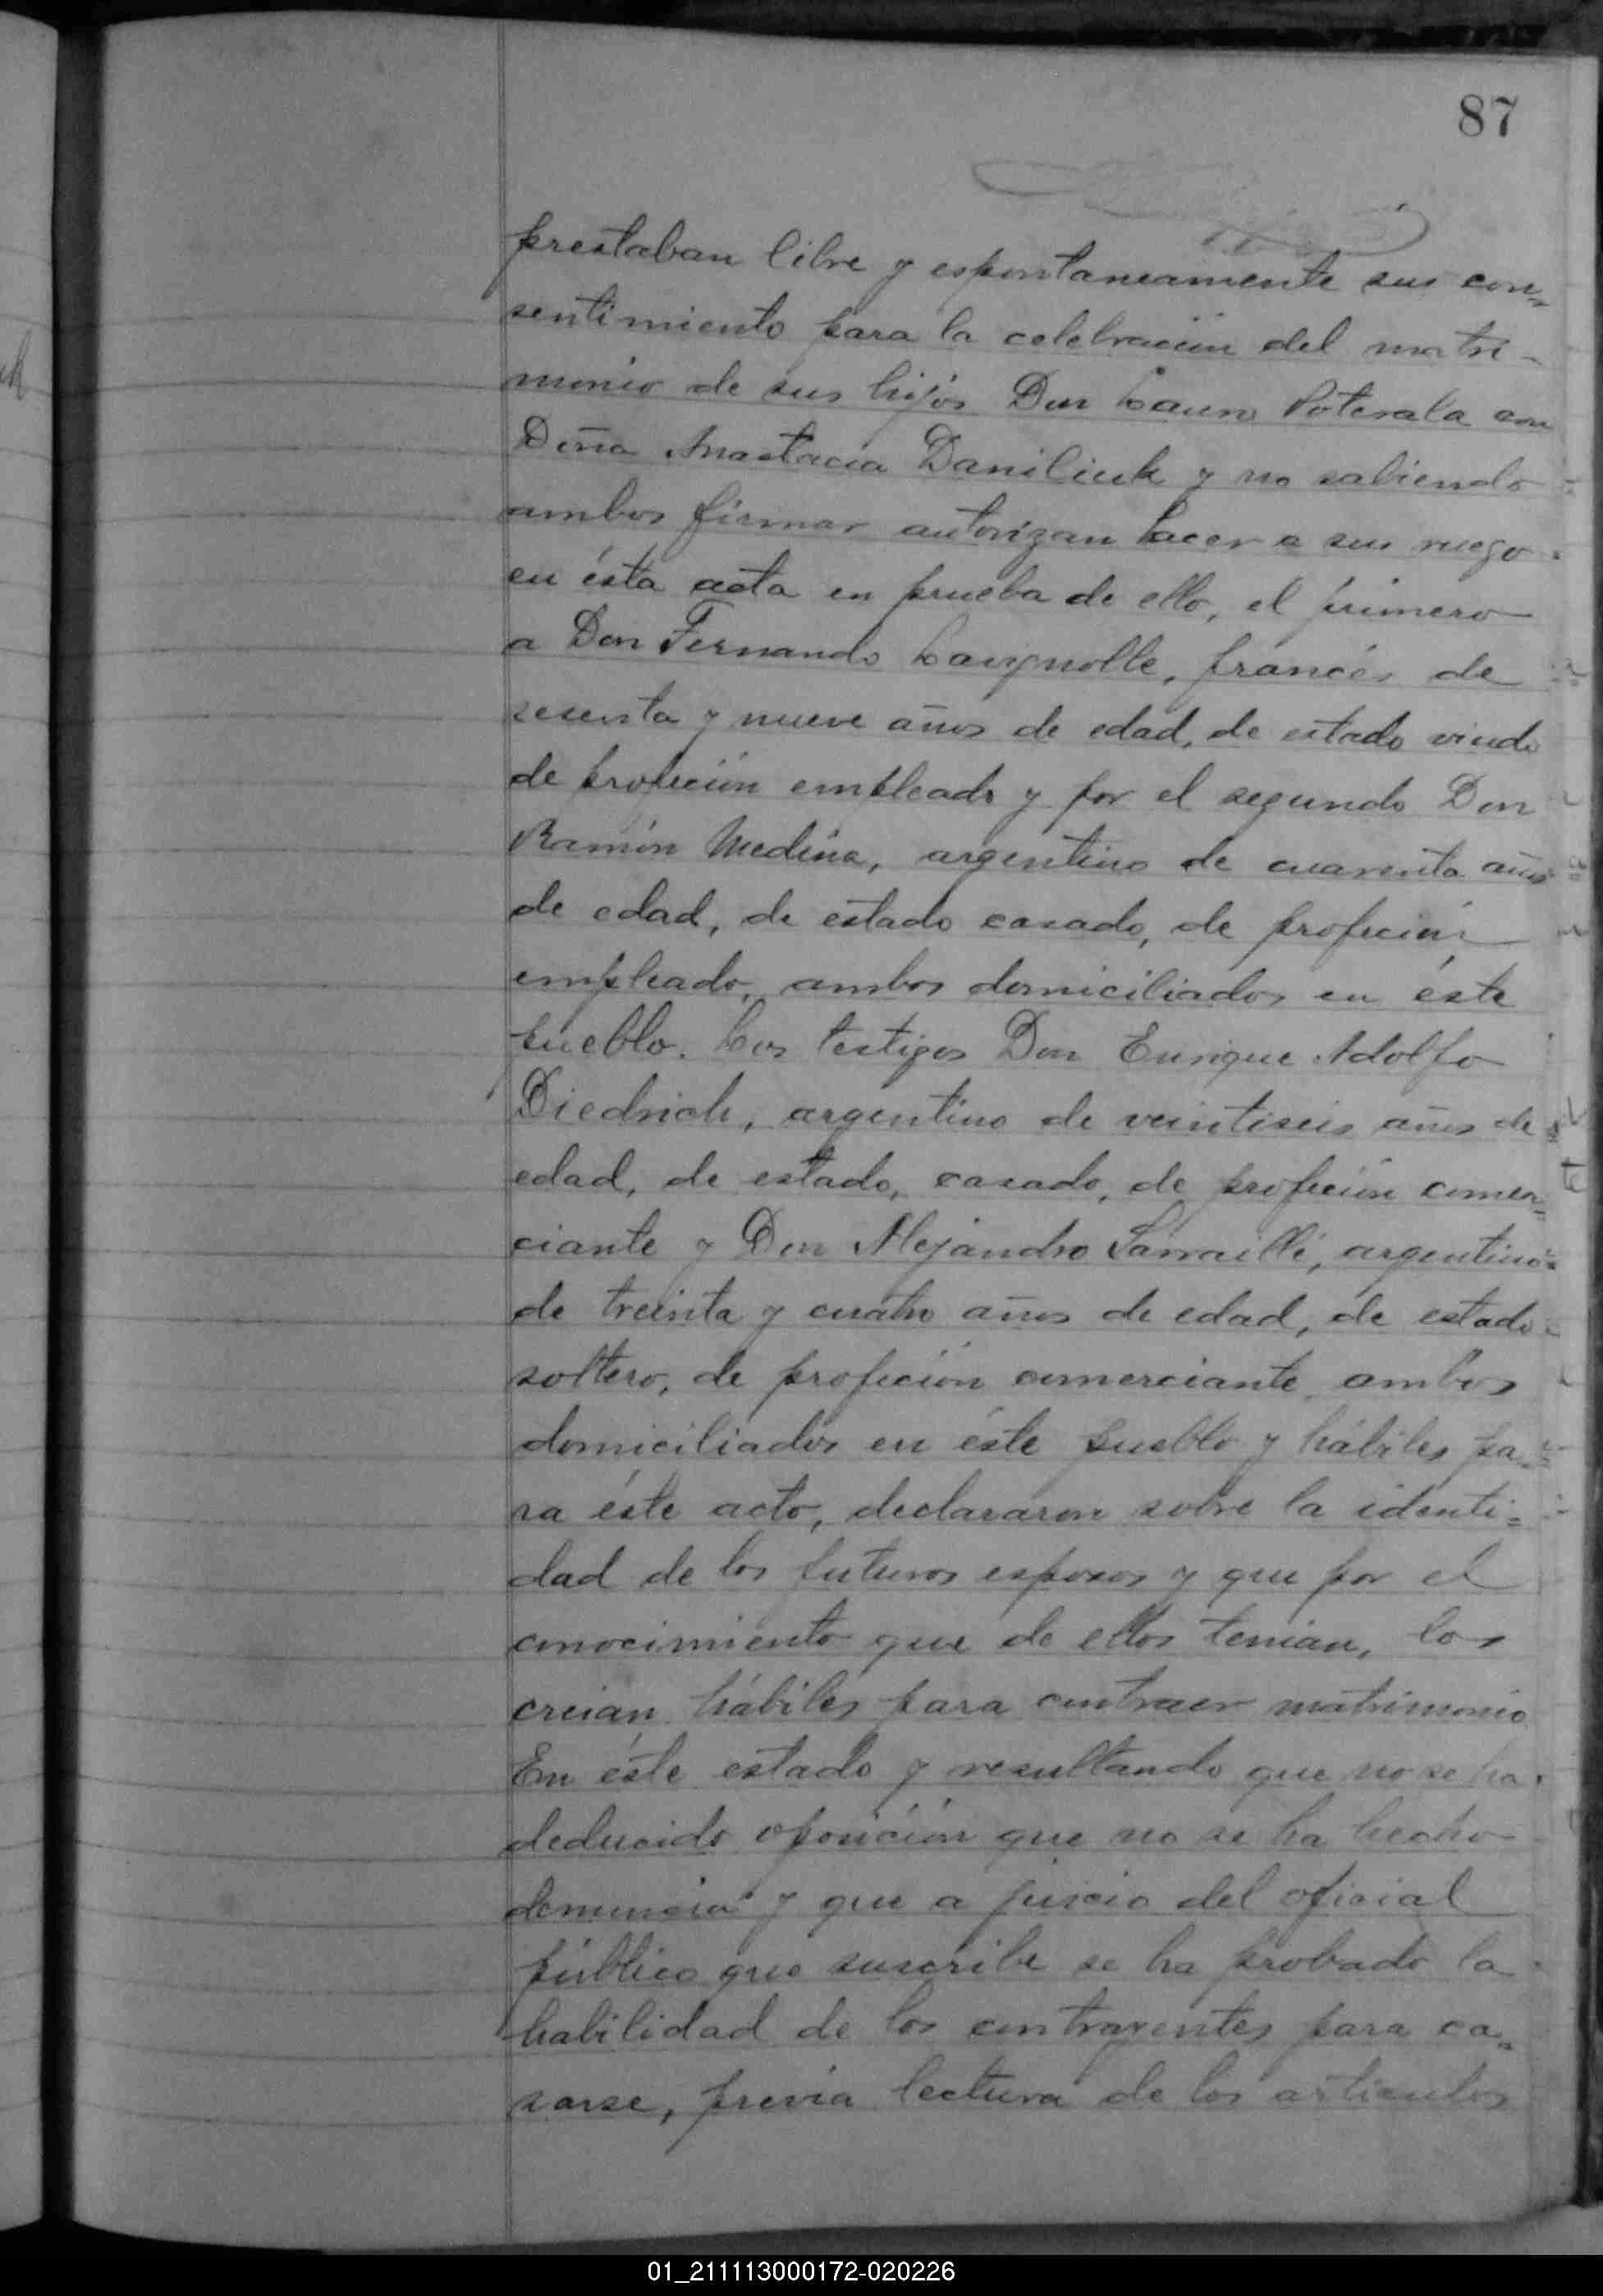 87
prestaban libre y espontaneamente sus con=
sentimiento para la celebración del matri-
monio de sus hijos Don Lauro Poterala con
Doña Anastacia Daniliuk y no sabiendo
ambos firmar autorizan hacer a sus ruego
en ésta acta en prueba de ello, el primero
a Don Fernando Lavignolle, francés de
sesenta y nueve años de edad, de estado viudo
de profeción empleado y por el segundo Don
Ramón Medina, argentino de cuarenta años
de edad, de estado casado, de profeción
empleado, ambos domiciliados en éste
pueblo. Los testigos Don Enrique Adolfo
Diedrich, argentino de veintiseis años de
edad, de estado, casado, de profeción comer=
ciante y Don Alejandro Sarraillé, argentino
de treinta y cuatro años de edad, de estado
soltero, de profeción comerciante, ambos
domiciliados en éste pueblo y hábiles pa=
ra éste acto, declararon sobre la identi=
dad de los futuros esposos y que por el
conocimiento que de ellos tenian, los
creian hábiles para contraer matrimonio
En éste estado y resultando que no se ha
deducido oposición que no se ha hecho
denuncia y que a juicio del oficial
público que suscribe se ha probado la
habilidad de los contrayentes para ca=
sarse, previa lectura de los articulos
01_211113000172-020226